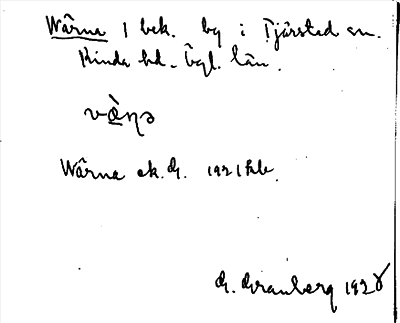 Wärna 1 bek. by i Tjärstad sn.
Kinda hd. Ögl. län.
vä̀ṇə
Wärna ek. G. 1921
G. Granberg 1928